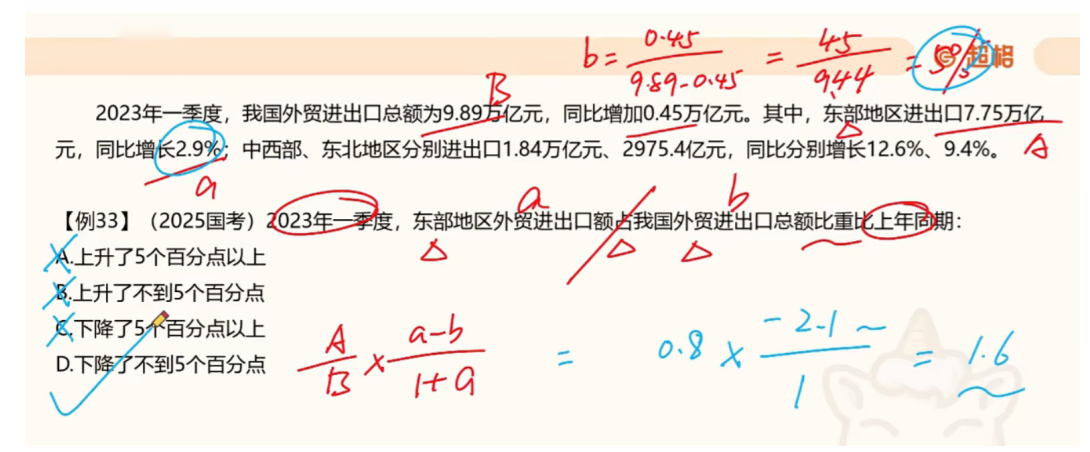 b = 0.45 / 9.89-0.45 = 45 / 944 = 5%
超格
B
2023年一季度，我国外贸进出口总额为9.89万亿元，同比增加0.45万亿元。其中，东部地区进出口7.75万亿
元，同比增长2.9%；中西部、东北地区分别进出口1.84万亿元、2975.4亿元，同比分别增长12.6%、9.4%。
A
a
a b
【例33】（2025国考）2023年一季度，东部地区外贸进出口额占我国外贸进出口总额比重比上年同期：
A.上升了5个百分点以上
B.上升了不到5个百分点
C.下降了5个百分点以上
D.下降了不到5个百分点
A/B × a-b / 1+a = 0.8 × -2.1~ / 1 = 1.6